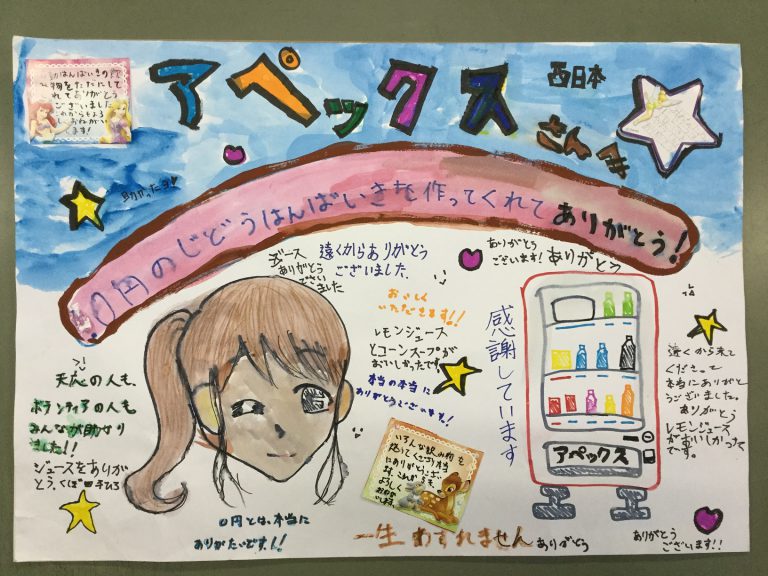 はんばいきの飲
物をただにして
くれてありがとう
ございました
これからもよろ
しくおねがいし
ます!
アペックス
西日本
さんへ
助かったヨ
0円のじどうはんばいきを作ってくれてありがとう!
ジュース
ありがとう
ござい
ました
遠くからありがとう
ございました。
ありがとう
ございます!
ありがとう
おいしく
いただきます!!
レモンジュース
とコーンスープが
おいしかったです。
本当の本当に
ありがとうございます!
感謝しています
アペックス
遠くから来て
くださって
本当にありがと
うございました。
ありがとう
レモンジュース
がおいしかった
です。
天応の人も、
ボランティアの人も
みんなが助かり
ました!!
ジュースをありが
とう、
いろんな飲み物を
売ってくださり本当
にありがとうござい
ます。これからも
よろしく
おねがい
します。
0円とは、本当に
ありがたいです!!
一生わすれません
ありがとう
ありがとう
ございます!!